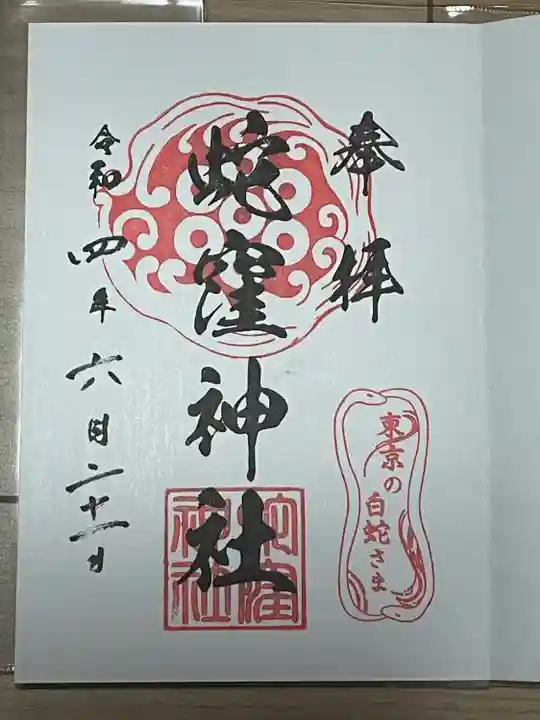 奉拝
東京の白蛇さま
蛇窪神社
蛇窪
神社
令和四年六月二十一日